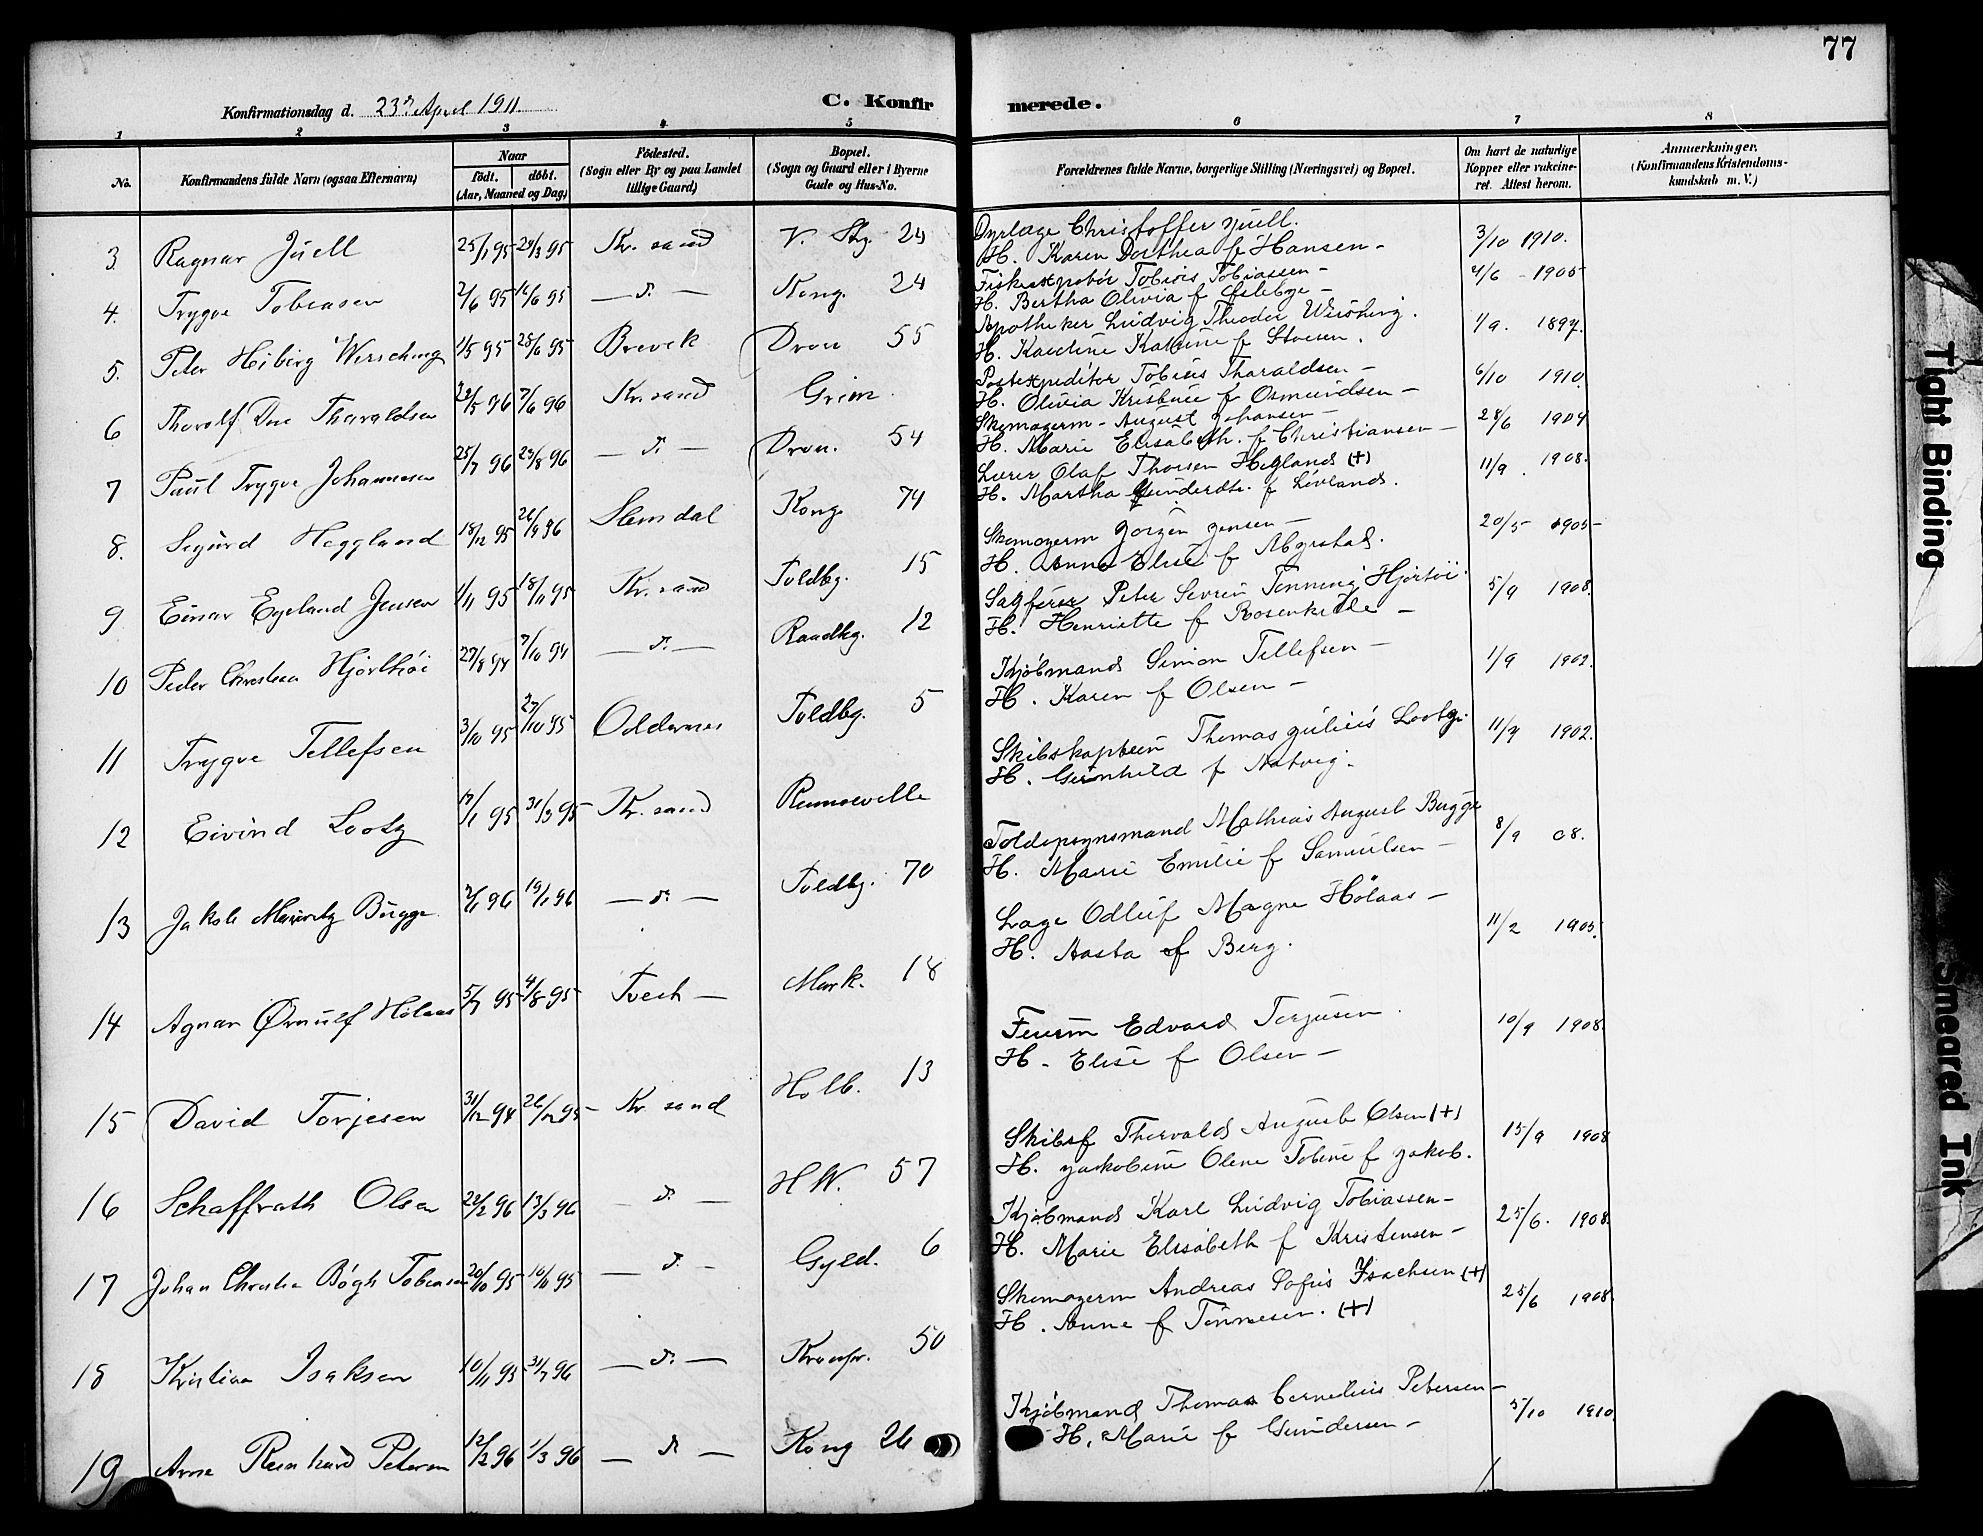 77
Konfirmationsdag d. 23de April 1911.
C. Konfirmerede.
1 2 3 4 5 6 7 8
No.
Konfirmandens fulde Navn (ogsaa Efternavn)
Naar
født. døbt.
(Aar, Maaned og Dag)
Fødested.
(Sogn eller By og paa Landet
tillige Gaard)
Bopæl.
(Sogn og Gaard eller i Byerne
Gade og Hus-No.
Forældrenes fulde Navne, borgerlige Stilling (Næringsvei) og Bopæl.
Om havt de naturlige
Kopper eller vakcine-
ret. Attest herom.
Anmærkninger.
(Konfirmandens Kristendoms-
kundskab m. V.)
3. Ragnar Juell 25/1 95 24/3 95 Kr. sand V. Stg. 24 Dyrlæge Christoffer Juell. 3/10 1910.
H. Karen Dorthea f Hansen -
4. Trygve Tobiasen 2/6 95 16/6 95 — d. — Kong. 24 Tobias Tobiassen - 4/6 - 1905
H. Bertha Olivia f
5. Peter Heiberg Wersching 1/5 95 25/6 95 Brevik Dron 55 Apotheker Ludvig Theodor 1/9. 1897.
H. Karoline Katrine f
6 Thoralf Due Tharaldsen 22/5 96 7/6 96 Kr. sand Grim Postexpeditør Tobias Tharaldsen - 6/10 1910
H. Olivia Kristine f Osmundsen -
7 Paul Trygve Johannesen 25/7 96 23/8 96 — d. — Dron. 54 Skomagerm - August Johansen - 28/6 1904
H. Marie Elisabeth. f Christiansen -
8. Sigurd Heggland 18/12 95 26/1 96 Kong. 74 Lærer Olaf Thorsen Hegland (+) 11/9. 1908.
H. Martha Gunderdtr. f Livland.
9 Einar Egeland Jensen 1/11 95 18/11 95 Kr. sand Toldbg. 15 Skomagerm Jørgen Jensen - 20/5 1905
H. Anne Elise f
10 Peder Christian Hjorthøi 27/8 94 7/10 94 — d. — Raadhg. 12 Sagfører Peter Severin Tønning Hjortøi. 5/9 1908.
H. Henriette f Rosenkilde -
11 Trygve Tellefsen 3/10 95 27/10 95 Oddernes Toldbg. 5 Kjøbmand Simon Tellefsen - 1/9 1902.
H. Karen f Olsen -
12 Eivind Lootz 17/1 95 31/3 95 Kr. sand Skibskaptein Thomas Julius Lootz. 11/9 1902.
H. Gunhild f Natvig.
13 Jakob Mauritz Bugge 2/1 96 19/1 96 — d. — Toldbg. 70 Toldopsynsmand Mathias August Bugge 8/9 08.
H. Marie Emilie f Samuelsen -
14 Agnar Ørnulf Holaas 5/7 95 4/8 95 Tveit - Mark. 18 Læge Odleif Magne Holaas - 11/2 1905.
H. Aasta f Berg.
15 David Torjesen 31/12 94 26/12 95 Kr. sand Holb. 13 Feierm Edvard Torjusen. 10/9 1908.
H. Elise f Olsen -
16 Schaffrath Olsen 22/2 96 13/3 96 — d. — H.W. 57 Skibsf Thorvald August Olsen (+) 15/9 1908
H. Jakobine Olene Tobine f Jakob.
17 Johan Christian Bøgh Tobiassen 20/10 95 10/11 95 — d. — Gyld. 6 Kjøbmand Karl Ludvig Tobiassen - 25/6. 1908.
H. Marie Elisabeth f Kristensen -
18 Kristian Isaksen 10/11 95 31/7 96 — d. — Kronpr. 50 Skomagerm Andreas Sofus Isachsen (+) 25/6 1908.
H. Anne f Tønnesen. (+)
19 Arne Reinhard Petersen 12/2 96 1/3 96 — d. — Kong 26 Kjøbmand Thomas Cornelius Petersen - 5/10 1910
H. Marie f Gundersen -
Tight Binding
Smeared Ink